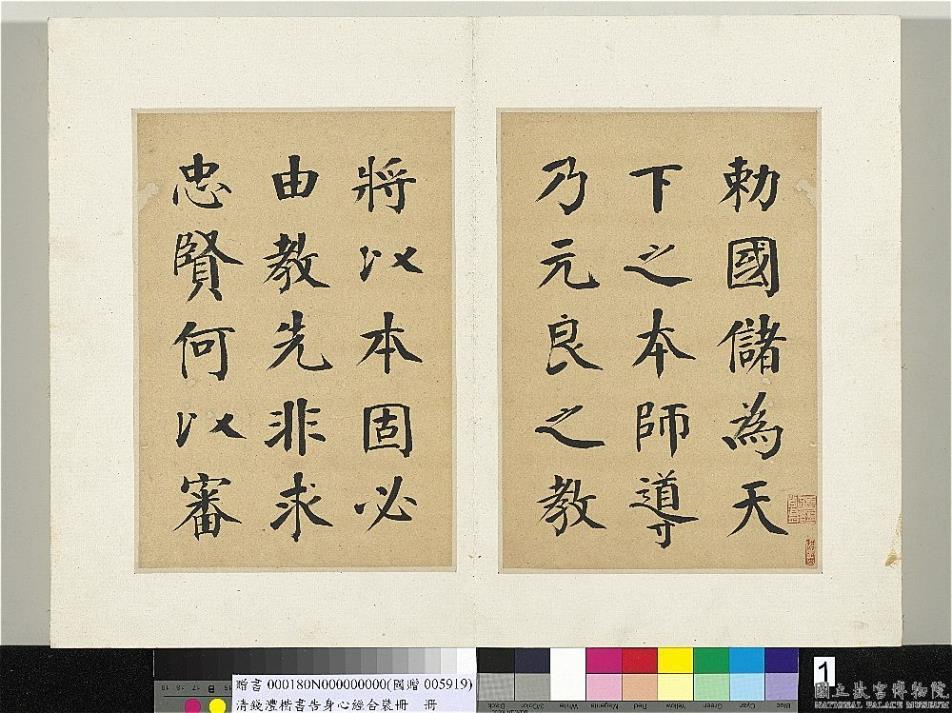 勅國儲為天
下之本師導
乃元良之教
將以本固必
由教先非求
忠賢何以審
贈書 000180N000000000(國贈 005919)
清錢灃楷書告身心經合裝冊 冊
1
國立故宮博物院
NATIONAL PALACE MUSEUM